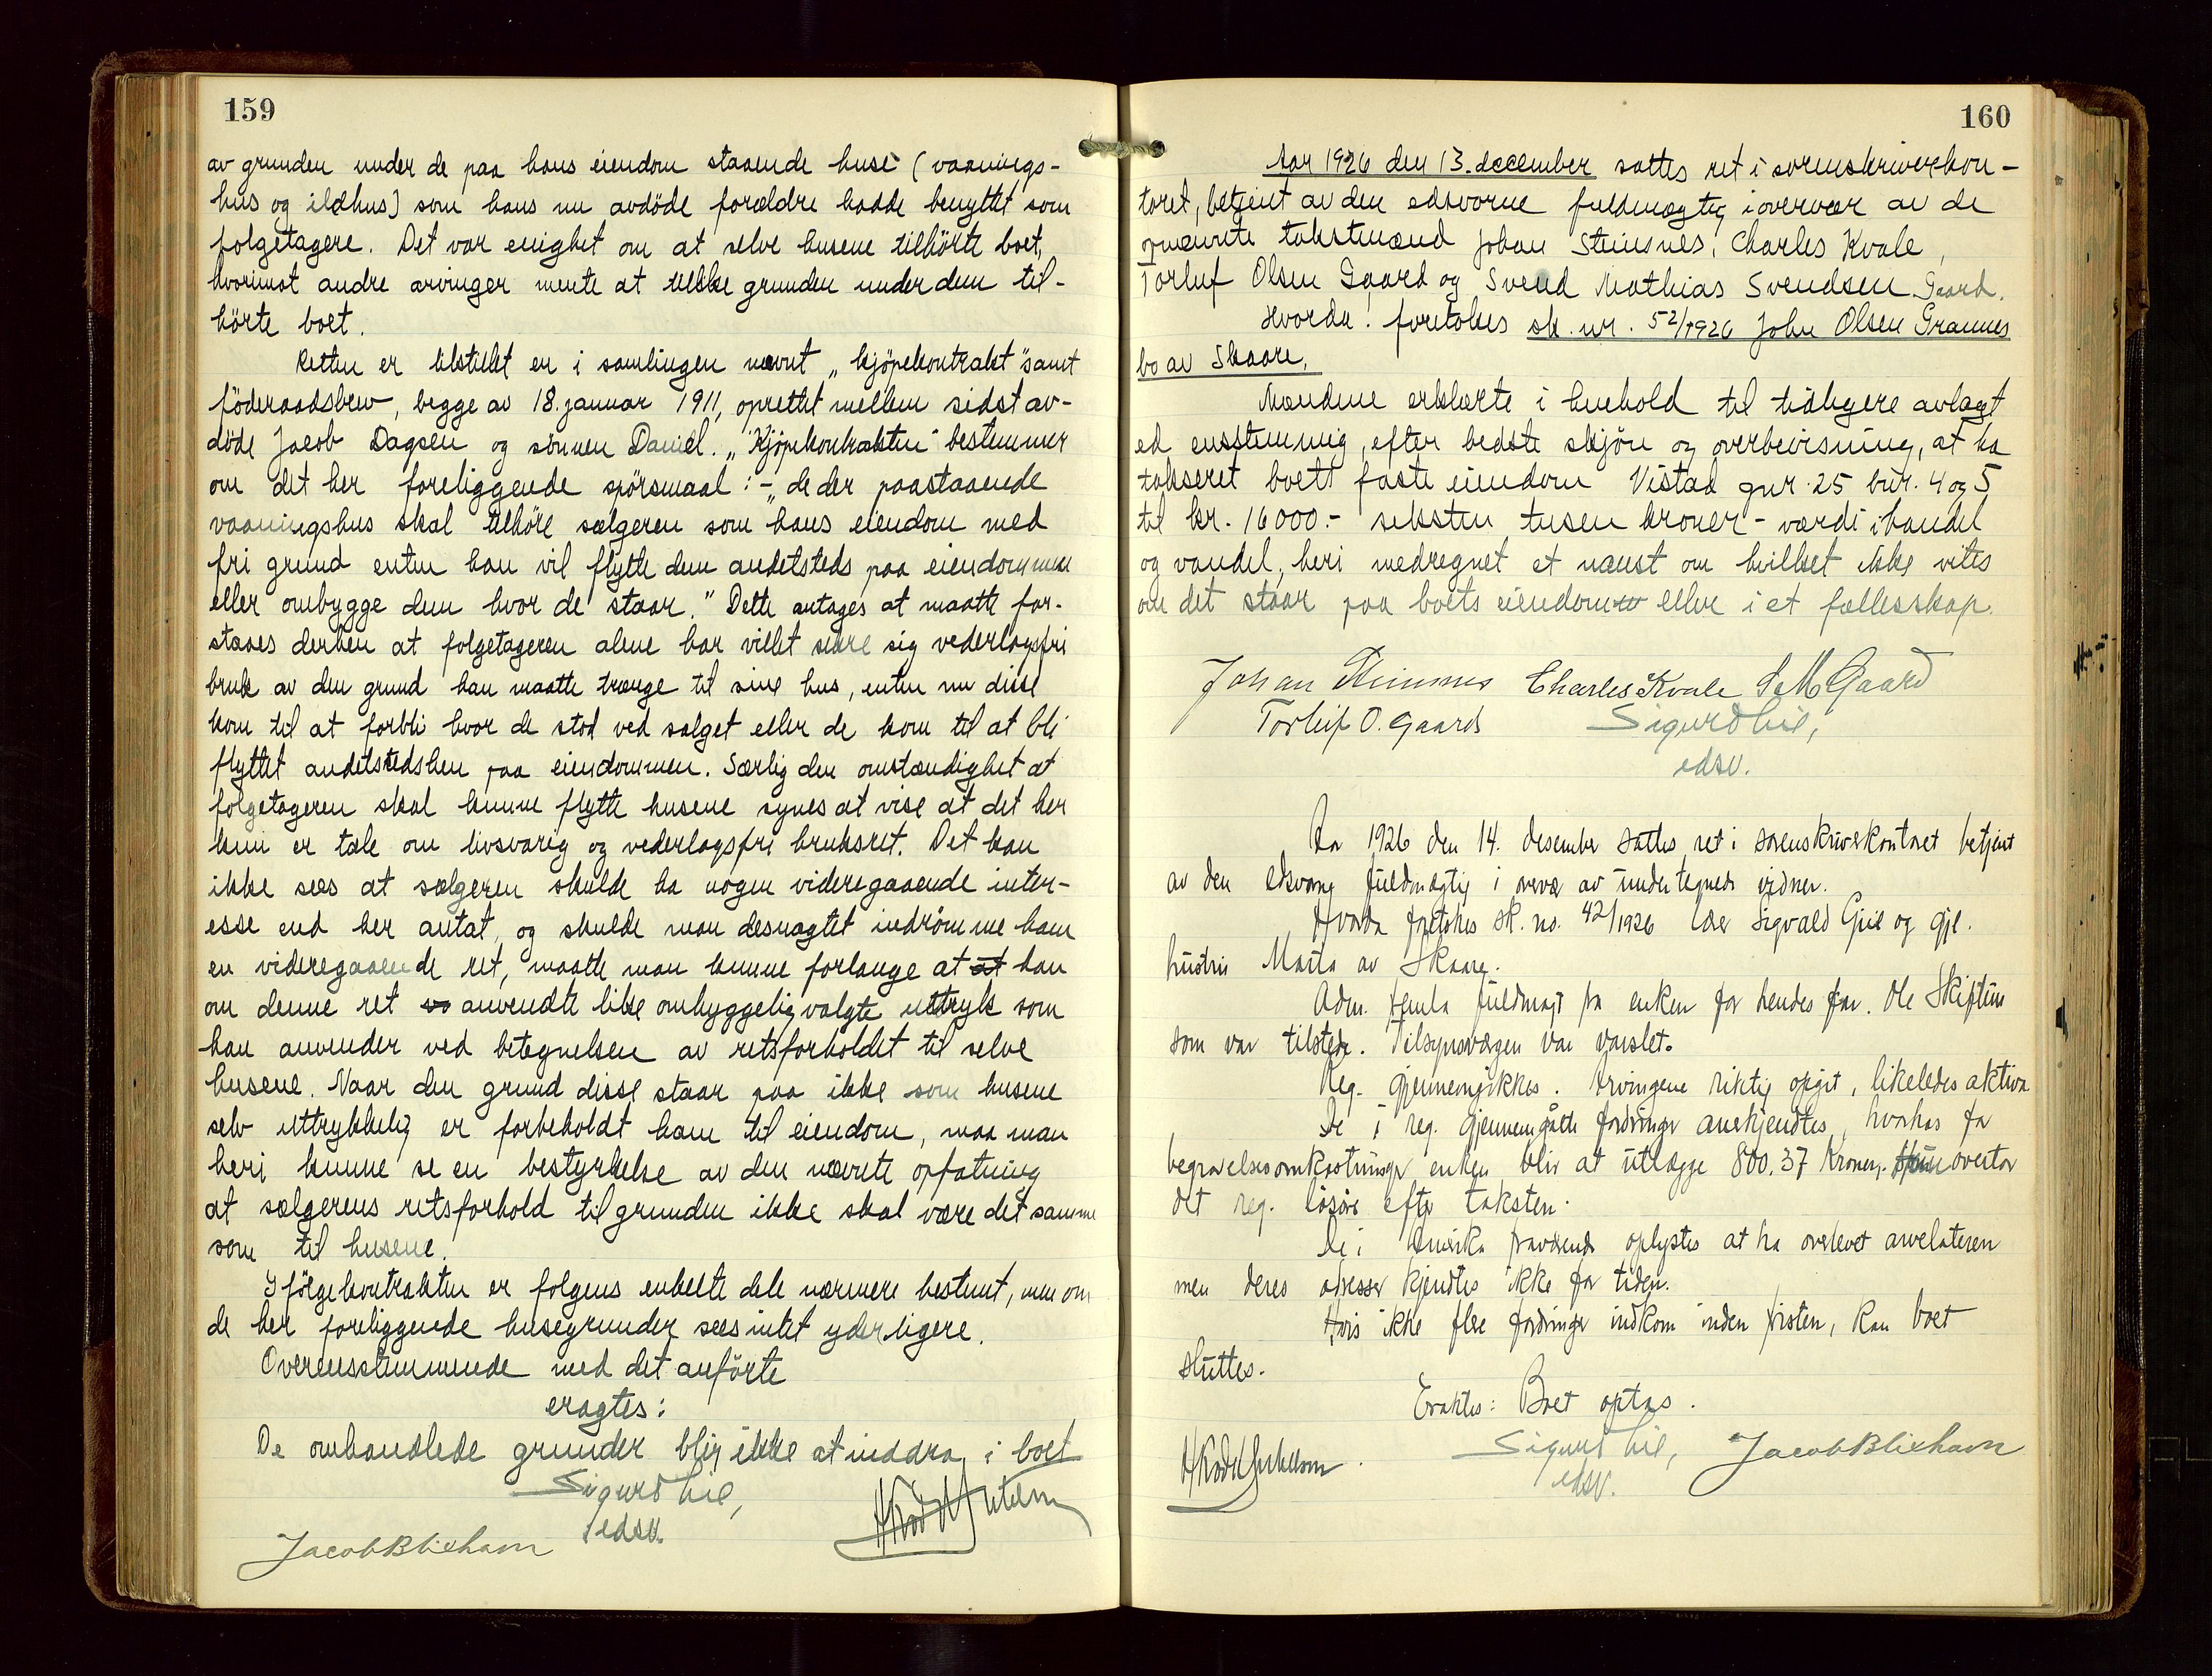 159
av grunden under de paa hans eiendom staaende huse (vaanings-
hus og ildhus) som hans nu avdöde forældre hadde benyttet som
folgetagere. Det var enighet om at selve husene tilhörte boet,
hvorimot andre arvinger mente at tillike grunden under dem til-
hörte boet.
Retten er tilstillet en i samlingen nævnt „kjöpekontrakt" samt
föderaadsbrev, begge av 18. januar 1911, oprettet mellem sidst av-
döde Jacob Dagsen og sönnen Daniel. „Kjöpekontrakten" bestemmer
om det her foreliggende spörsmaal: - „de der paastaaende
vaaningshus skal tilhöre sælgeren som hans eiendom med
fri grund enten han vil flytte dem andetsteds paa eiendommen
eller ombygge dem hvor de staar." Dette antages at maatte for-
staaes derhen at folgetageren alene har villet sikre sig vederlagsfri
bruk av den grund han maatte trænge til sine hus, enten nu disse
kom til at forbli hvor de stod ved salget eller de kom til at bli
flyttet andetstedshen paa eiendommen. Særlig den omstændighet at
folgetageren skal kunne flytte husene synes at vise at det her
kun er tale om livsvarig og vederlagsfri bruksret. Det kan
ikke sees at sælgeren skulde ha nogen videregaaende inter-
esse end her antat, og skulde man desuagtet indrömme ham
en videregaaende ret, maatte man kunne forlange at at han
om denne ret so anvendte like omhyggelig valgte uttryk som
han anvender ved betegnelsen av retsforholdet til selve
husene. Naar den grund disse staar paa ikke som husene
selv uttrykkelig er forbeholdt ham til eiendom, maa man
heri kunne se en bestyrkelse av den nævnte opfatning
at sælgerens retsforhold til grunden ikke skal være det samme
som til husene.
Ifölge kontrakten er folgens enkelte dele nærmere bestemt, men om
de her foreliggende husegrunder sees intet yderligere.
Overensstemmende med det anförte
eragtes:
De omhandlede grunder blir ikke at inddra i boet
Sigurd Lie,
edsv.
Jacob Blixhavn
160
Aar 1926 den 13. december sattes ret i sorenskriverkon-
toret, betjent av den edsvorne fuldmægtig i overvær av de
opnævnte takstmænd Johan Steinsnes, Charles Kvale,
Torleif Olsen Gaard og Svend Mathias Svendsen Gaard.
Hvorda: foretokes sk. nr. 52/1926 John Olsen Grannes
bo av Skaare.
Mændene erklærte i henhold til tidligere avlagt
ed enstemmig, efter bedste skjön og overbevisning, at ha
takseret boets faste eiendom Vistad gnr. 25 bnr. 4 og 5
til kr. 16000.- seksten tusen kroner - værdi i handel
og vandel, heri medregnet et naust om hvilket ikke vites
om det staar paa boets eiendom eller i et fællesskap.
Johan Steinsnes Charles Kvale S. M Gaard
Torleif O. Gaard Sigurd Lie,
edsv.
Aar 1926 den 14. desember sattes ret i sorenskriverkontoret betjent
av den edsvorne fuldmægtig i overvær av undertegnede vidner.
Hvorda foretokes sk. no. 42/1926 Lars Sigvald Gjil og gjl.
hustru Marta av Skaare.
Adm. fremla fuldmagt fra enken for hendes far. Ole Skiftun
som var tilstede. Tilsynsværgen var varslet.
Reg. gjennemgikkes. Arvingene riktig opgit, likeledes aktiva
De i reg. gjennemgåtte fordringer anerkjendtes, hvorhos for
begravelsesomkostninger enken blir at utlægge 800.37 kroner. Hun overtar
det reg. lösöre efter taksten.
De i Amerika fraværende oplystes at ha overlevet arvelateren
men deres adresser kjendtes ikke for tiden.
Hvis ikke flere fordringer indkom inden fristen, kan boet
sluttes.
Eraktes: Boet optas.
Sigurd Lie, Jacob Blixhavn
edsv.